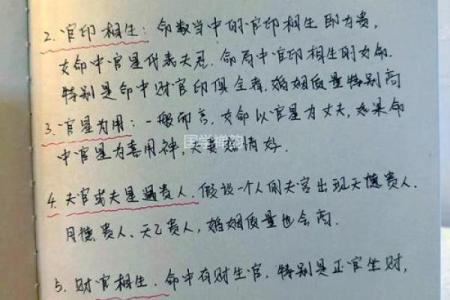 2. 官印相生：命数当中的官印相生即为贵，
女命中官是代表夫君，命局中官印相生的女命，
特别是命中财官印俱全者，婚姻质量特别高
3. 官星为用：一般而言，女命以官星为丈夫，如果命
中官星为喜用神，夫妻感情好．
4. 夫宫或夫星遇贵人．假设一个人的夫宫出现天德贵人．
月德贵人、天乙贵人，婚姻质量也会高．
5. 财官相生．命中有财生官．特别是正官生财，